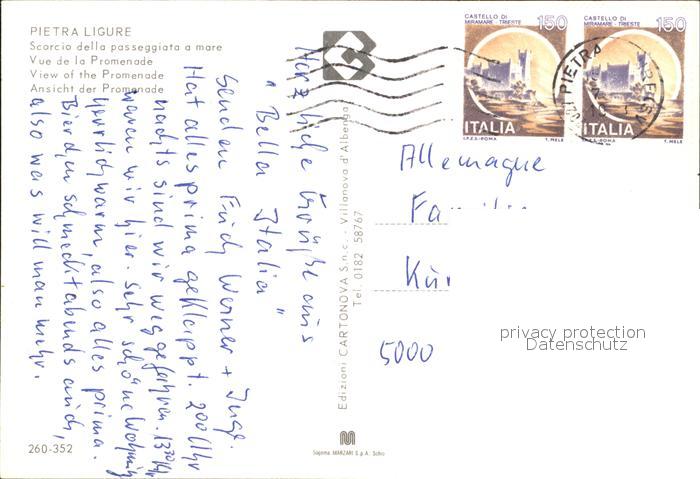 PIETRA LIGURE
Scorcio della passeggiata a mare
Vue de la Promenade
View of the Promenade
Ansicht der Promenade
Herzliche Grüße aus
"Bella Italia"
Senden Euch Werner + Inge.
Hat alles prima geklappt. 200 Uhr
nachts sind wir weggefahren. 1330 Uhr
waren wir hier. Sehr schöne Wohnung
herrlich warm, also alles prima.
Bierchen schmeckt abends auch,
also was will man mehr.
260-352
Edizioni CARTONOVA S.n.c. - Villanova d'Albenga
Tel. 0182 58767
Sagema MARZARI S.p.A. Schio
CASTELLO DI
MIRAMARE - TRIESTE
150
ITALIA
I.P.Z.S.-ROMA
T. MELE
CASTELLO DI
MIRAMARE - TRIESTE
150
ITALIA
I.P.Z.S.-ROMA
T. MELE
PIETRA
Allemagne
Fa
Kür
5000
privacy protection
Datenschutz